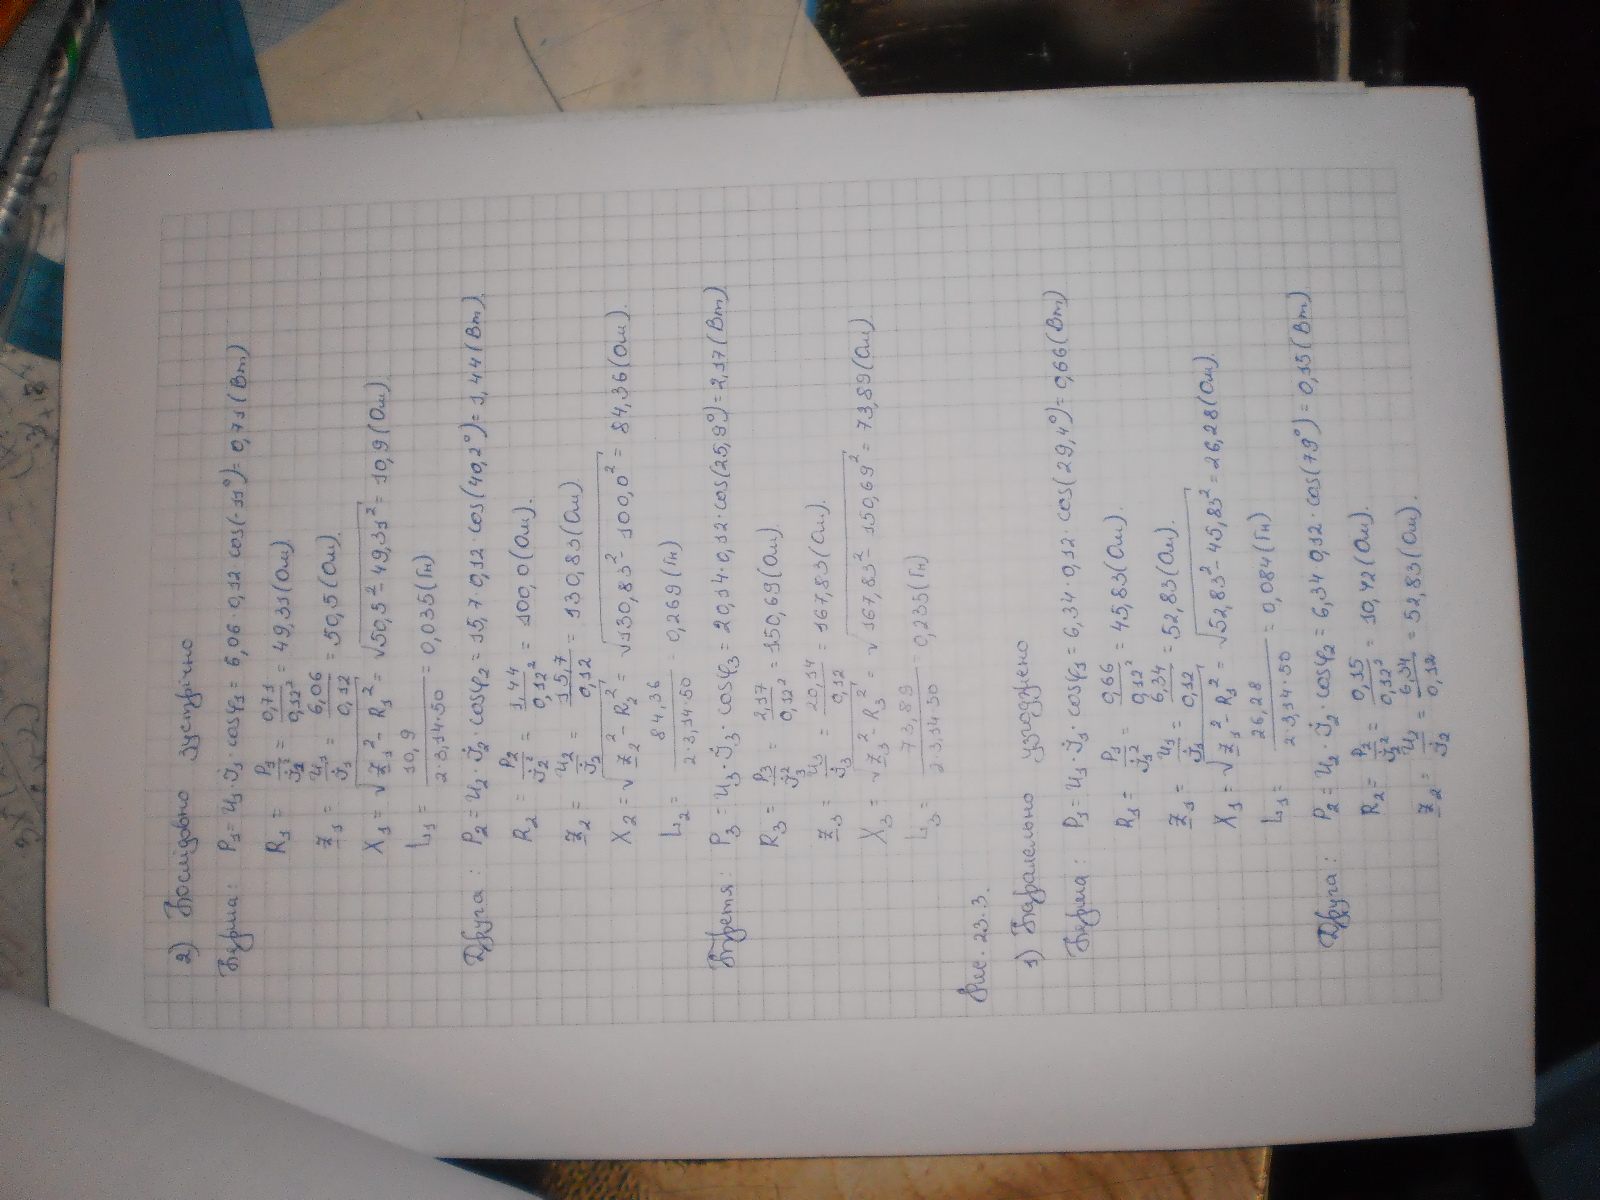 2) Послідовно зустрічно
Перша: P₁ = U₁·I₁·cosφ₁ = 6,06·0,12·cos(-11°) = 0,71 (Вт)
R₁ = P₁/I₁² = 0,71/0,12² = 49,31 (Ом)
Z₁ = U₁/I₁ = 6,06/0,12 = 50,5 (Ом)
X₁ = √(Z₁² - R₁²) = √(50,5² - 49,31²) = 10,9 (Ом)
L₁ = 10,9/(2·3,14·50) = 0,035 (Гн)
Друга: P₂ = U₂·I₂·cosφ₂ = 15,7·0,12·cos(40,2°) = 1,44 (Вт)
R₂ = P₂/I₂² = 1,44/0,12² = 100,0 (Ом).
Z₂ = U₂/I₂ = 15,7/0,12 = 130,83 (Ом)
X₂ = √(Z₂² - R₂²) = √(130,83² - 100,0²) = 84,36 (Ом).
L₂ = 84,36/(2·3,14·50) = 0,269 (Гн)
Третя: P₃ = U₃·I₃·cosφ₃ = 20,14·0,12·cos(25,9°) = 2,17 (Вт)
R₃ = P₃/I₃² = 2,17/0,12² = 150,69 (Ом)
Z₃ = U₃/I₃ = 20,14/0,12 = 167,83 (Ом)
X₃ = √(Z₃² - R₃²) = √(167,83² - 150,69²) = 73,89 (Ом)
L₃ = 73,89/(2·3,14·50) = 0,235 (Гн)
Рис. 23.3.
1) Паралельно узгоджено
Перша: P₁ = U₁·I₁·cosφ₁ = 6,34·0,12·cos(29,4°) = 0,66 (Вт)
R₁ = P₁/I₁² = 0,66/0,12² = 45,83 (Ом).
Z₁ = U₁/I₁ = 6,34/0,12 = 52,83 (Ом)
X₁ = √(Z₁² - R₁²) = √(52,83² - 45,83²) = 26,28 (Ом).
L₁ = 26,28/(2·3,14·50) = 0,084 (Гн)
Друга: P₂ = U₂·I₂·cosφ₂ = 6,34·0,12·cos(79°) = 0,15 (Вт)
R₂ = P₂/I₂² = 0,15/0,12² = 10,42 (Ом).
Z₂ = U₂/I₂ = 6,34/0,12 = 52,83 (Ом).